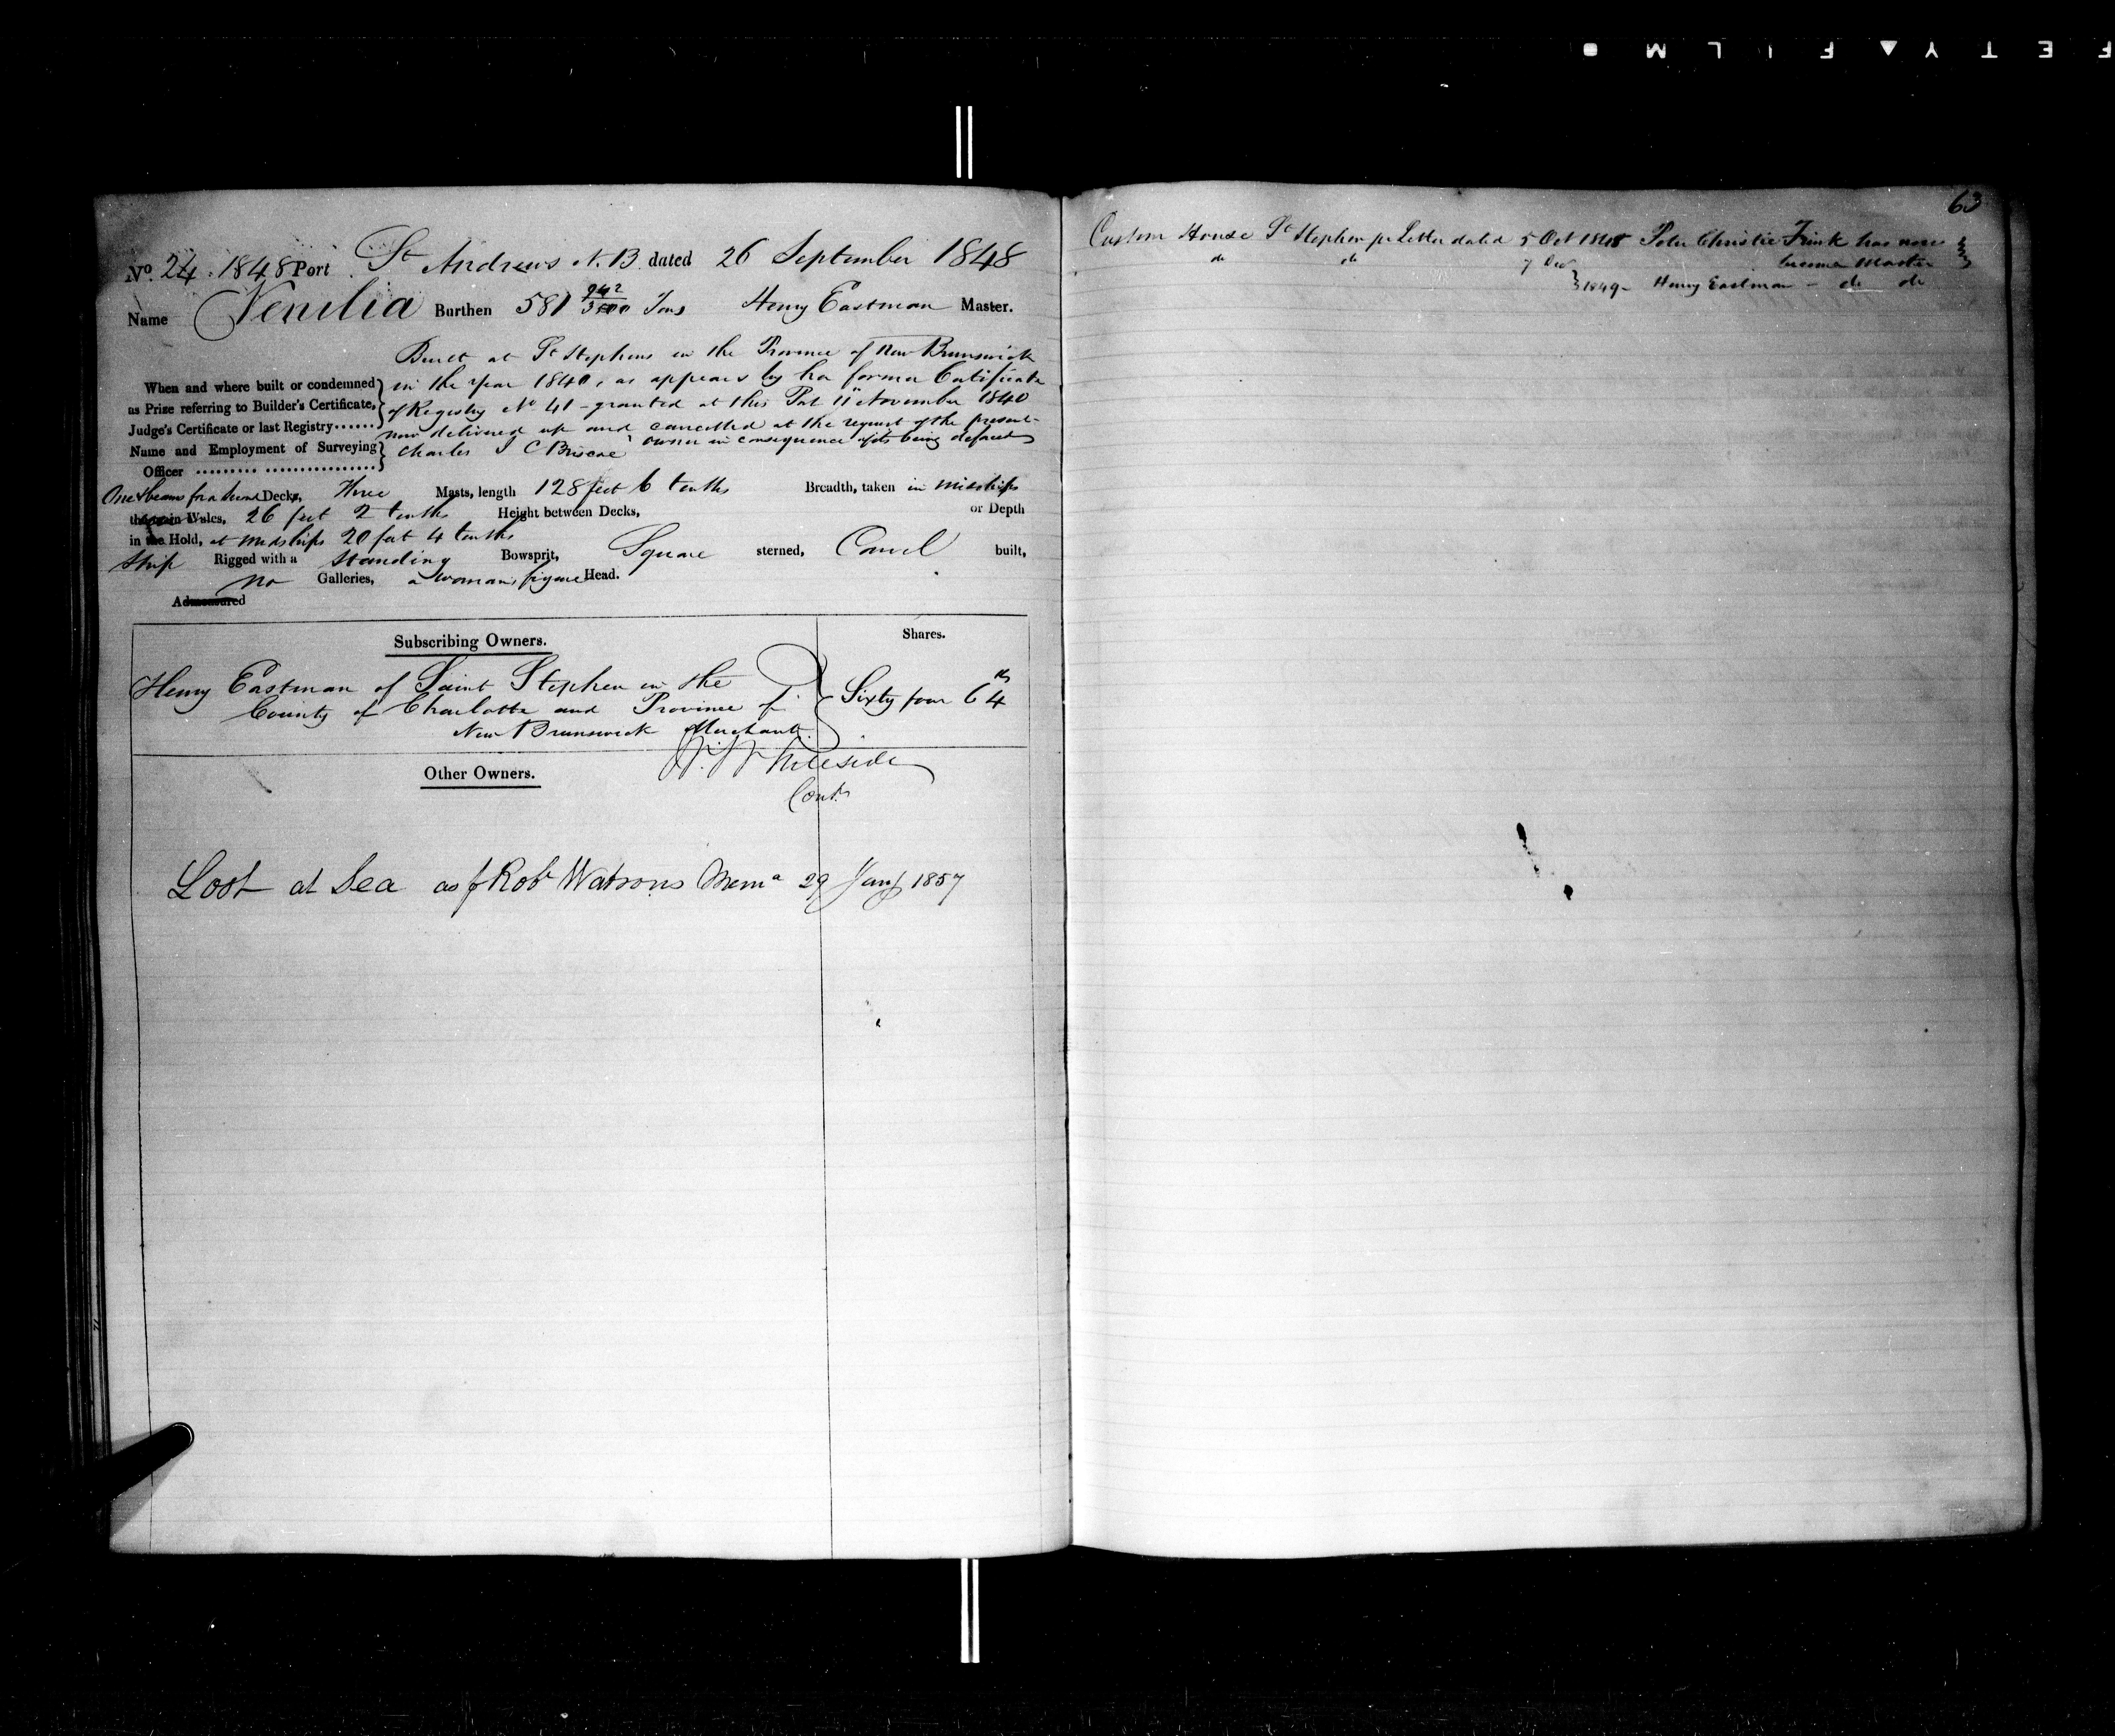 SAFETY FILM
No. 24. 1848 Port St. Andrews N.B. dated 26 September 1848
Name Venilia Burthen 581 942/3500 Tons Henry Eastman Master.
Built at St Stephens in the Province of New Brunswick
When and where built or condemned in the Year 1840, as appears by her former Certificate
as Prize referring to Builder's Certificate, of Registry No 41 - granted at this Port 11 November 1840
Judge's Certificate or last Registry...... now delivered up and cancelled at the request of the present
Name and Employment of Surveying Charles J C Briscoe owner in consequence of its being defaced
Officer ......... ................
One & beams for a second Decks, Three Masts, length 128 feet 6 tenths Breadth, taken in Midships
the main Wales, 26 feet 2 tenths Height between Decks, or Depth
in the Hold, at Midships 20 feet 4 tenths
Ship Rigged with a Standing Bowsprit, Square sterned, Carvel built,
No Galleries, a womans figure Head.
Admeasured
Subscribing Owners. Shares.
Henry Eastman of Saint Stephen in the
County of Charlotte and Province of Sixty four 64ths
New Brunswick Merchant.
Other Owners.
Cont.
Lost at Sea as p Robt Watsons Mema 29 Jany 1857
63
Custom House St Stephen pr Letter dated 5 Oct 1848 Peter Christie Frink has now
become Master
do do 7 Dec
1849 - Henry Eastman - do do